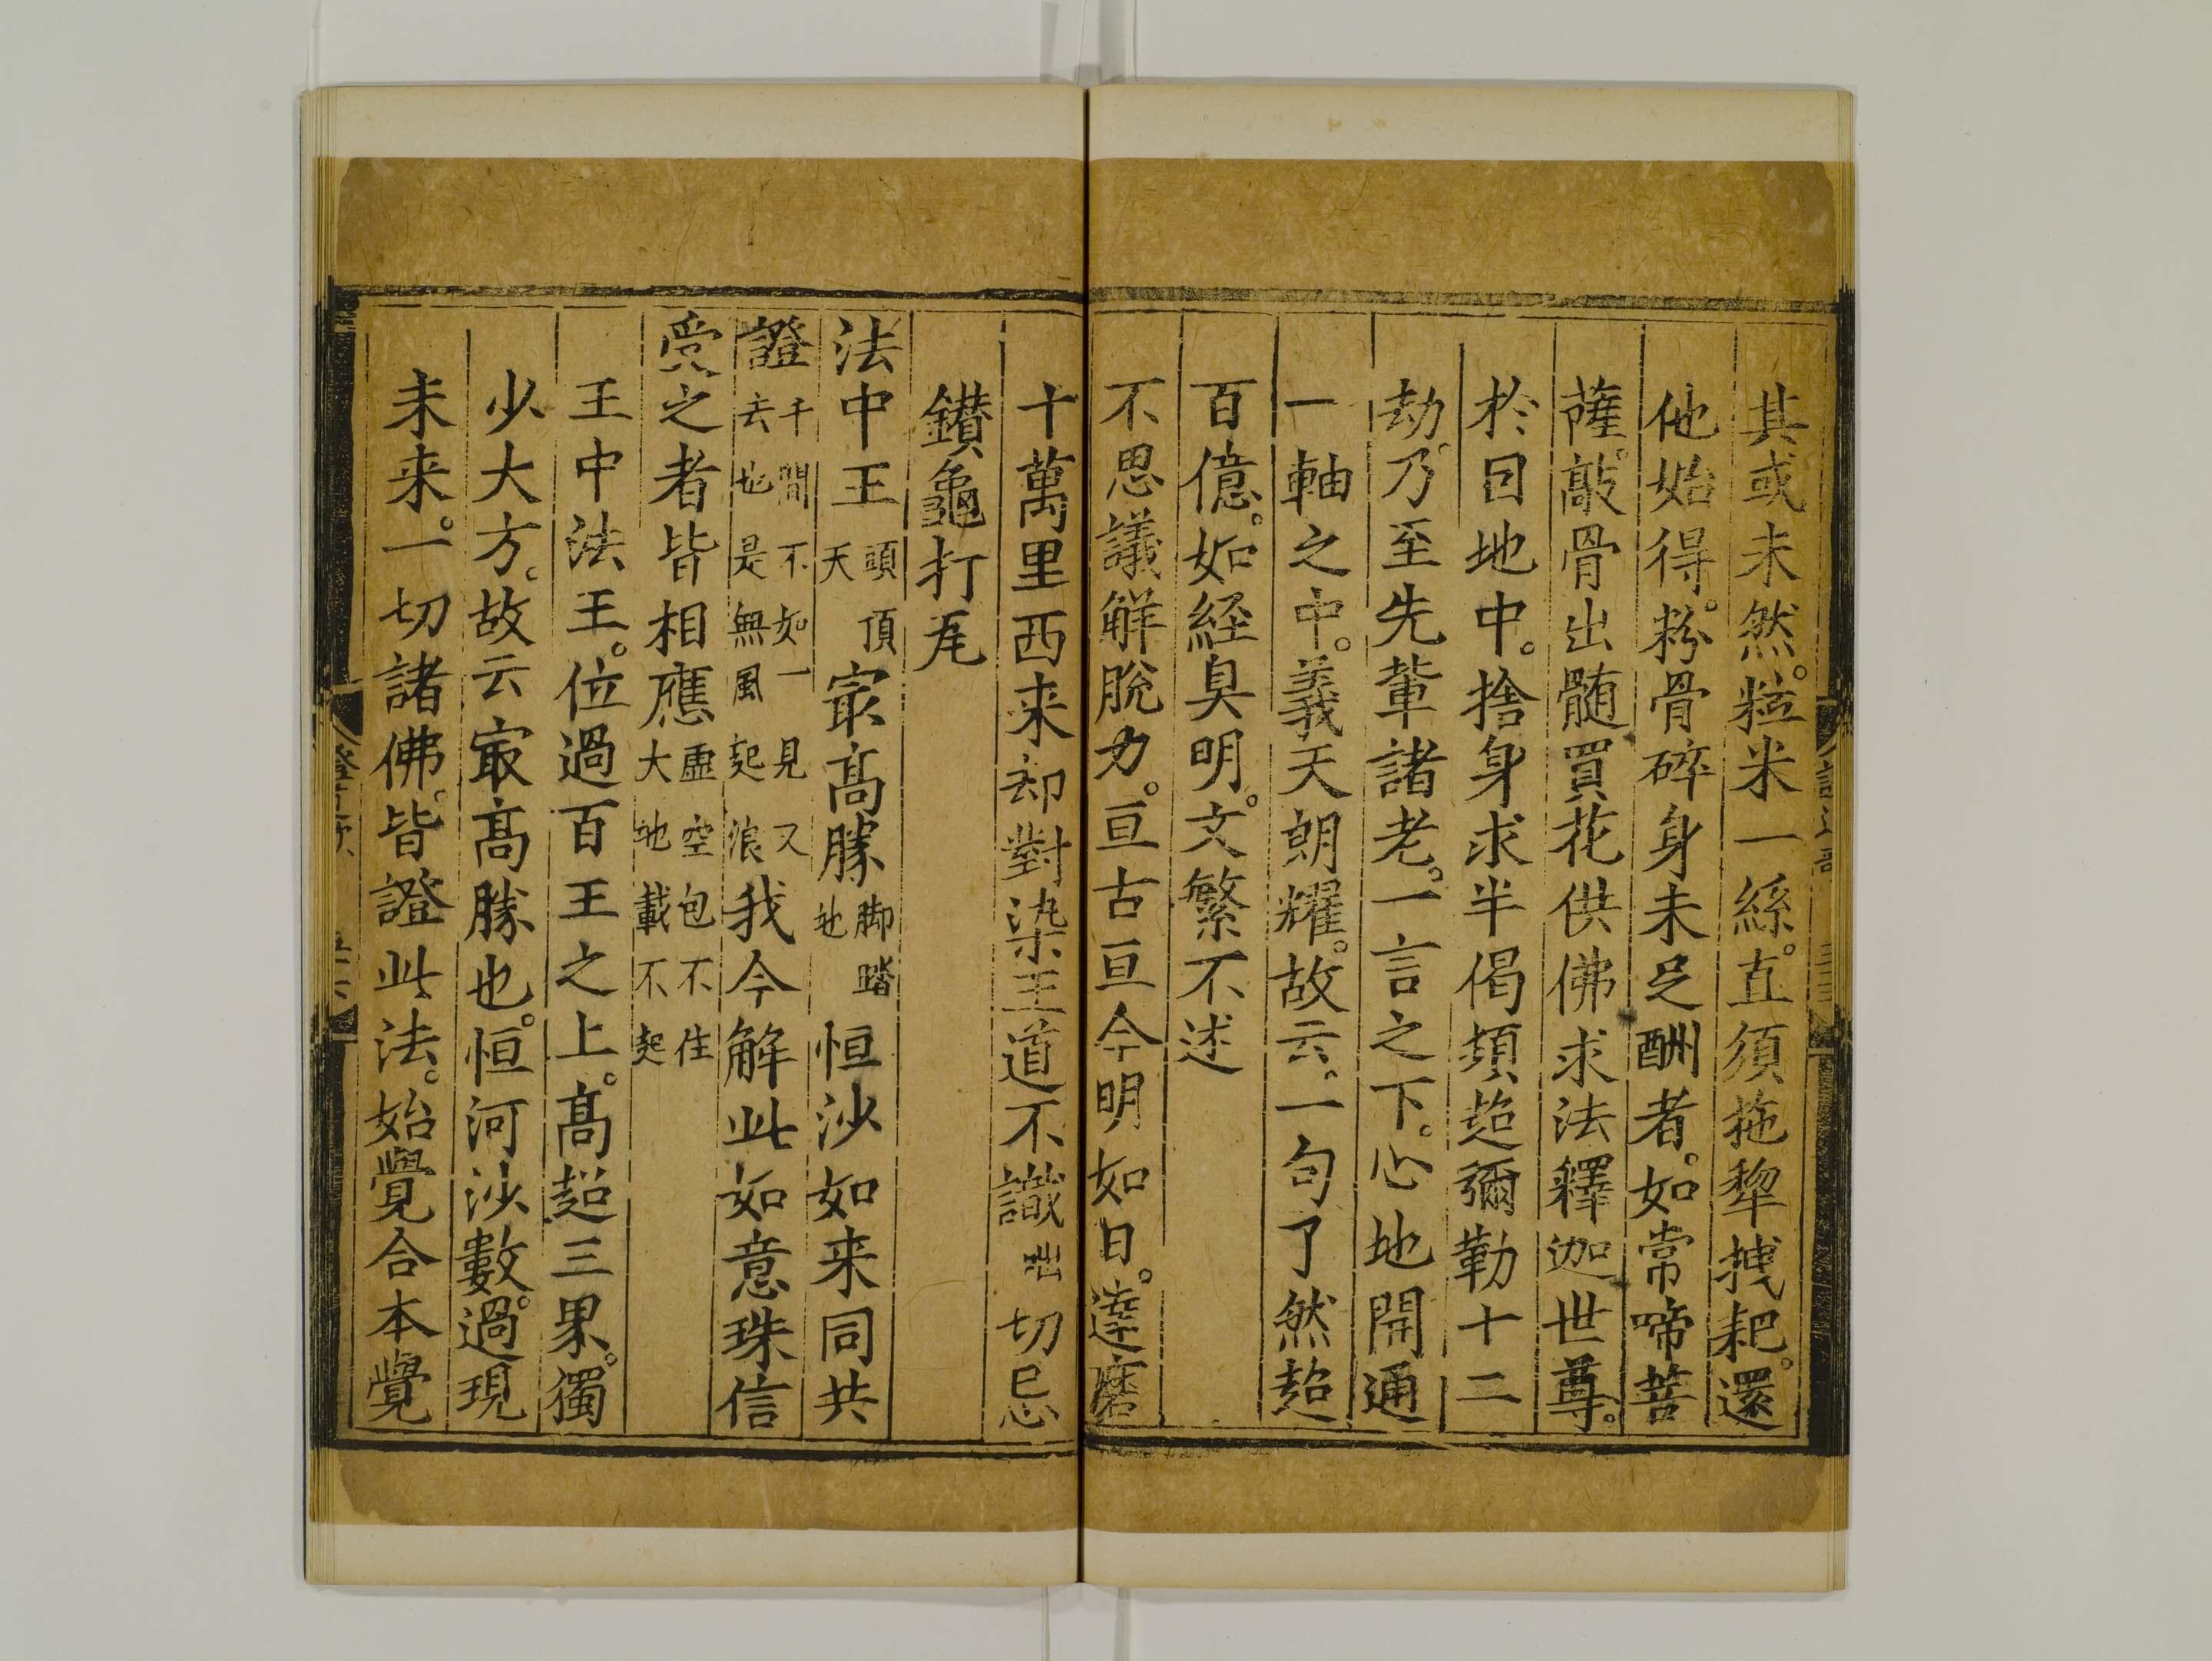 其或未然。粒米一絲。直須拖犂拽耙。還
他始得。粉骨碎身未足酬者。如常啼菩
薩。敲骨出髄買花供佛求法釋迦世尊。
於因地中。捨身求半偈類超彌勒十二
劫。乃至先軰諸老。一言之下。心地開通
一軸之中。義天朗耀。故云。一句了然超
百億。如経臭明。文繁不述
不思議解脫力。亘古亘今明如日。達磨
十萬里西来却對梁王道不識咄切忌
鑚龜打瓦
法中王頭頂天㝡髙勝脚踏地恒沙如来同共
證千聞不如一見又去也是無風起浪我今解此如意珠信
受之者皆相應虛空包不住大地載不起
王中法王。位過百王之上。髙超三界。獨
少大方。故云㝡髙勝也。恒河沙數。過現
未来。一切諸佛。皆證此法。始覺合本覺